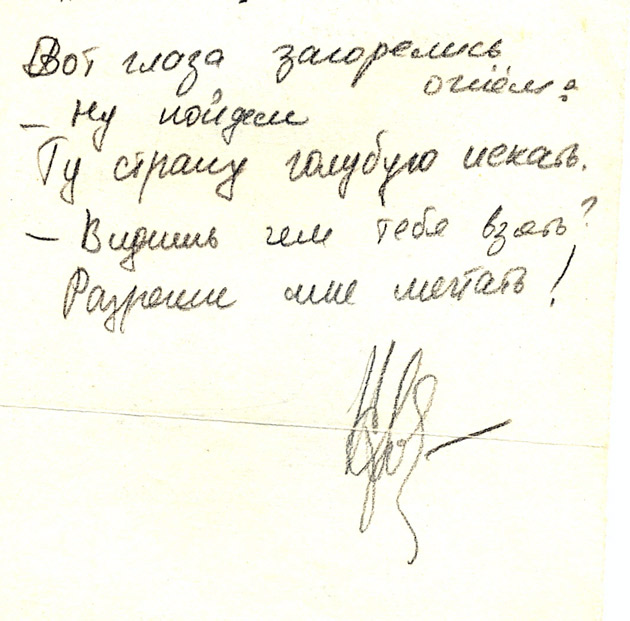 Вот глаза загорелись
огнём:
— Ну пойдем
Ту страну голубую искать.
— Видишь чем тебя взять?
Разреши мне мечтать!